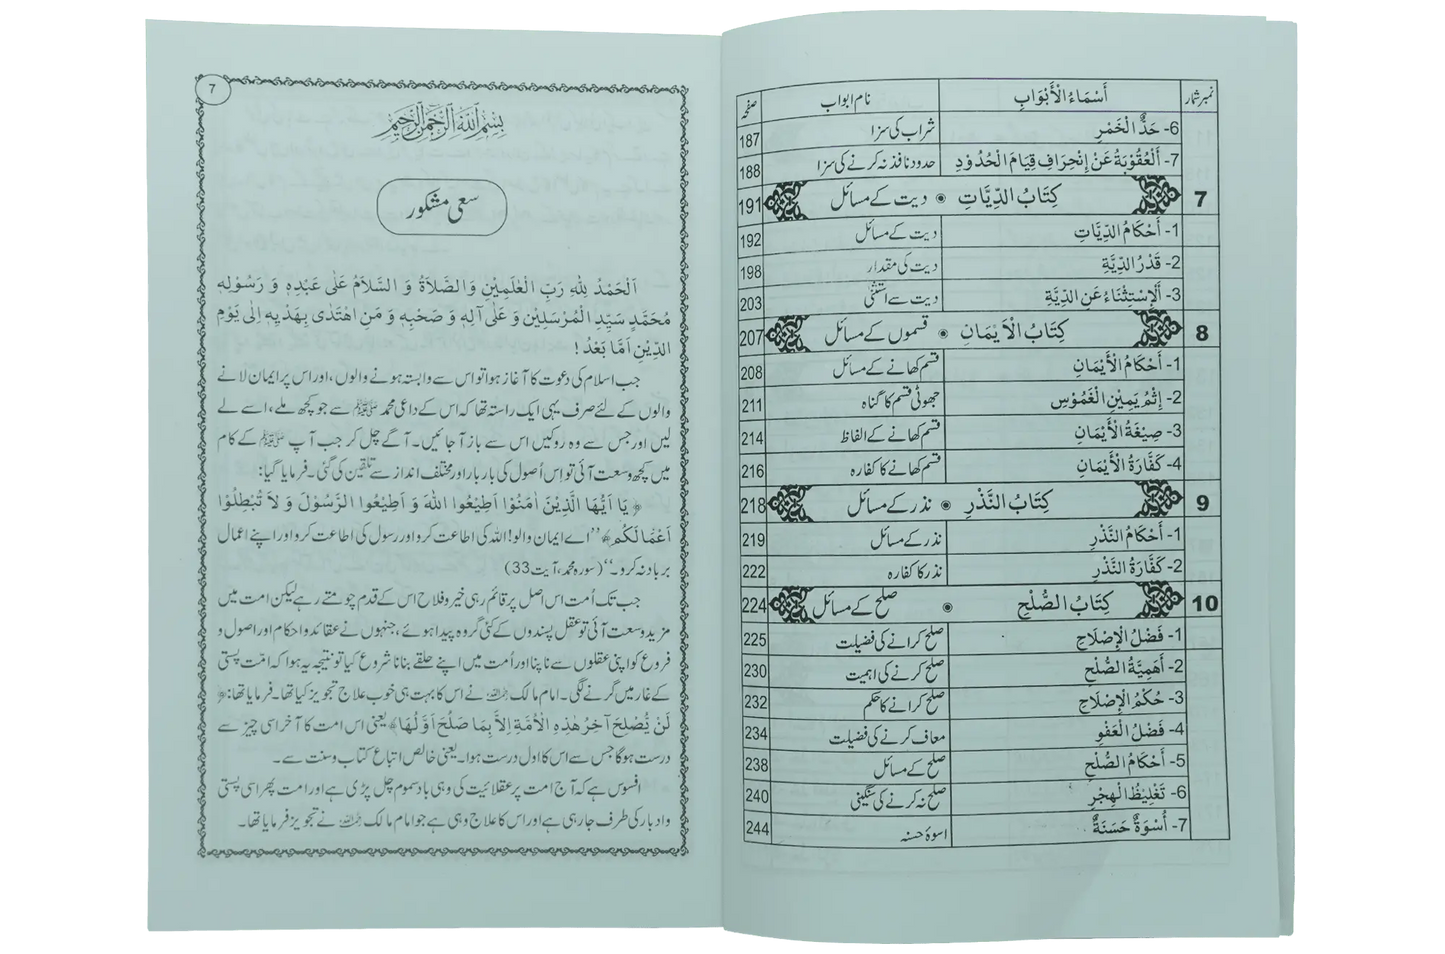 نمبر شمار أَسْمَاءُ الْأَبْوَابِ نام ابواب صفحہ
6- حَدُّ الْخَمْرِ شراب کی سزا 187
7- أَلْعُقُوْبَةُ عَنْ إِنْحِرَافِ قِيَامِ الْحُدُوْدِ حدود نافذ نہ کرنے کی سزا 188
7 كِتَابُ الدِّيَّاتِ دیت کے مسائل 191
1- أَحْكَامُ الدِّيَّاتِ دیت کے مسائل 192
2- قَدْرُ الدِّيَّةِ دیت کی مقدار 198
3- أَلْإِسْتِثْنَاءُ عَنِ الدِّيَّةِ دیت سے استثنیٰ 203
8 كِتَابُ الْاَيْمَانِ قسموں کے مسائل 207
1- أَحْكَامُ الْأَيْمَانِ قسم کھانے کے مسائل 208
2- إِثْمُ يَمِيْنِ الْغَمُوْسِ جھوٹی قسم کا گناہ 211
3- صِيْغَةُ الْأَيْمَانِ قسم کھانے کے الفاظ 214
4- كَفَّارَةُ الْأَيْمَانِ قسم کھانے کا کفارہ 216
9 كِتَابُ النَّذْرِ نذر کے مسائل 218
1- أَحْكَامُ النَّذْرِ نذر کے مسائل 219
2- كَفَّارَةُ النَّذْرِ نذر کا کفارہ 222
10 كِتَابُ الصُّلْحِ صلح کے مسائل 224
1- فَضْلُ الْإِصْلَاحِ صلح کرانے کی فضیلت 225
2- أَهَمِيَّةُ الصُّلْحِ صلح کرنے کی اہمیت 230
3- حُكْمُ الْإِصْلَاحِ صلح کرانے کا حکم 232
4- فَضْلُ الْعَفْوِ معاف کرنے کی فضیلت 234
5- أَحْكَامُ الصُّلْحِ صلح کے مسائل 238
6- تَغْلِيْظُ الْهِجْرِ صلح نہ کرنے کی سنگینی 240
7- أُسْوَةٌ حَسَنَةٌ اسوۂ حسنہ 244
7
بِسْمِ اللهِ الرَّحْمٰنِ الرَّحِيْمِ
سعی مشکور
اَلْحَمْدُ لِلّٰهِ رَبِّ الْعٰلَمِيْنَ وَالصَّلاَةُ وَ السَّلاَمُ عَلٰى عَبْدِهٖ وَ رَسُوْلِهٖ
مُحَمَّدٍ سَيِّدِ الْمُرْسَلِيْنَ وَ عَلٰى آلِهٖ وَ صَحْبِهٖ وَ مَنِ اهْتَدٰى بِهَدْيِهٖ اِلٰى يَوْمِ
الدِّيْنِ اَمَّا بَعْدُ !
جب اسلام کی دعوت کا آغاز ہوا تو اس سے وابستہ ہونے والوں، اور اس پر ایمان لانے
والوں کے لئے صرف یہی ایک راستہ تھا کہ اس کے داعی محمد ﷺ سے جو کچھ ملے، اسے لے
لیں اور جس سے وہ روکیں اس سے باز آ جائیں۔ آگے چل کر جب آپ ﷺ کے کام
میں کچھ وسعت آئی تو اِس اُصول کی بار بار اور مختلف انداز سے تلقین کی گئی۔ فرمایا گیا:
﴿ يَا اَيُّهَا الَّذِيْنَ اٰمَنُوْا اَطِيْعُوا اللهَ وَ اَطِيْعُوا الرَّسُوْلَ وَ لاَ تُبْطِلُوْا
اَعْمَالَكُمْ﴾ ’’اے ایمان والو! اللہ کی اطاعت کرو اور رسول کی اطاعت کرو اور اپنے اعمال
برباد نہ کرو۔‘‘ (سورہ محمد، آیت 33)
جب تک اُمت اس اصل پر قائم رہی خیر و فلاح اس کے قدم چومتے رہے لیکن امت میں
مزید وسعت آئی تو عقل پسندوں کے کئی گروہ پیدا ہوئے، جنہوں نے عقائد و احکام اور اصول و
فروع کو اپنی عقلوں سے ناپنا اور اُمت میں اپنے حلقے بنانا شروع کیا تو نتیجہ یہ ہوا کہ امّت پستی
کے غار میں گرنے لگی۔ امام مالک رحمہ اللہ نے اس کا بہت ہی خوب علاج تجویز کیا تھا۔ فرمایا تھا: ﴿
لَنْ يُّصْلِحَ آخِرَ هٰذِهِ الْاُمَّةِ اِلَّا بِمَا صَلَحَ اَوَّلُهَا﴾ یعنی اس امت کا آخر اسی چیز سے
درست ہو گا جس سے اس کا اول درست ہوا۔ یعنی خالص اتباع کتاب و سنت سے۔
افسوس ہے کہ آج امت پر عقلانیت کی وہی بادِ سموم چل پڑی ہے اور امت پھر اسی پستی
و ادبار کی طرف جا رہی ہے اور اس کا علاج وہی ہے جو امام مالک رحمہ اللہ نے تجویز فرمایا تھا۔